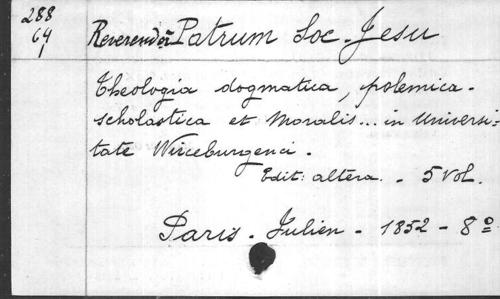 288
64
1
Reverendor̃ Patrum Soc. Jesu
Theologia dogmatica, polemica-
scholastica et Moralis... in Universi-
tate Wirceburgenci.
Edit: altera. - 5 Vol.
Paris - Julien - 1852 - 8º